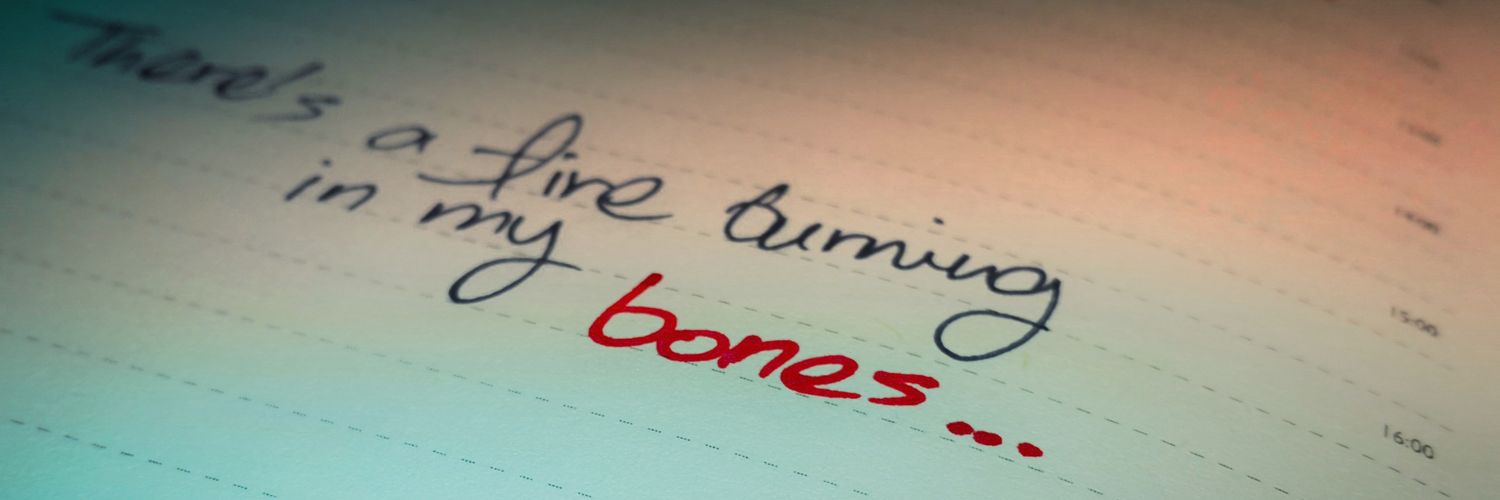 There's a fire burning
in my bones...
15:00
16:00